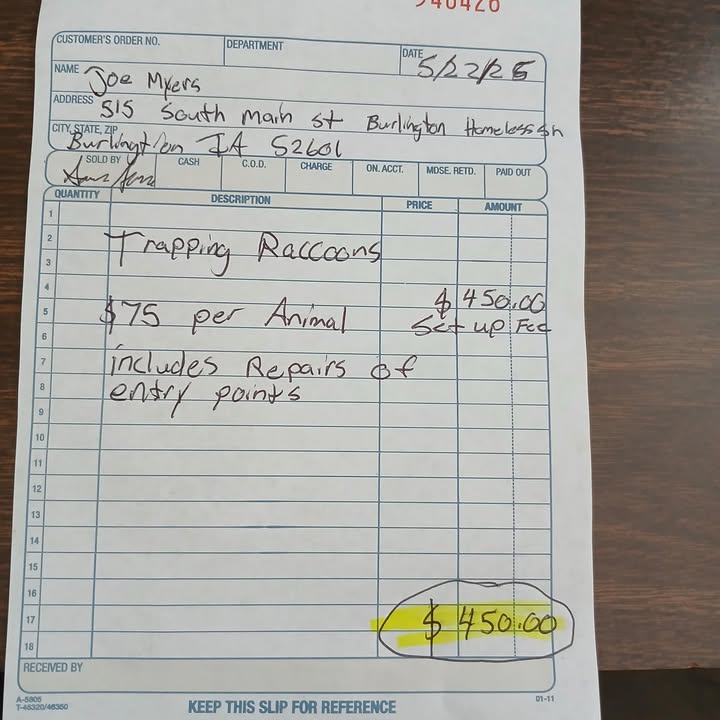 CUSTOMER'S ORDER NO. DEPARTMENT DATE 5/22/25
NAME Joe Myers
ADDRESS 515 South Main St Burlington Homeless sh
CITY, STATE, ZIP Burlington IA 52601
SOLD BY CASH C.O.D. CHARGE ON. ACCT. MDSE. RETD. PAID OUT
QUANTITY DESCRIPTION PRICE AMOUNT
1
2 Trapping Raccoons
3
4 $ 450.00
5 $75 per Animal Set up Fee
6
7 includes Repairs of
8 entry points
9
10
11
12
13
14
15
16
17 $ 450.00
18
RECEIVED BY
A-5805
T-46320/46350
KEEP THIS SLIP FOR REFERENCE
01-11